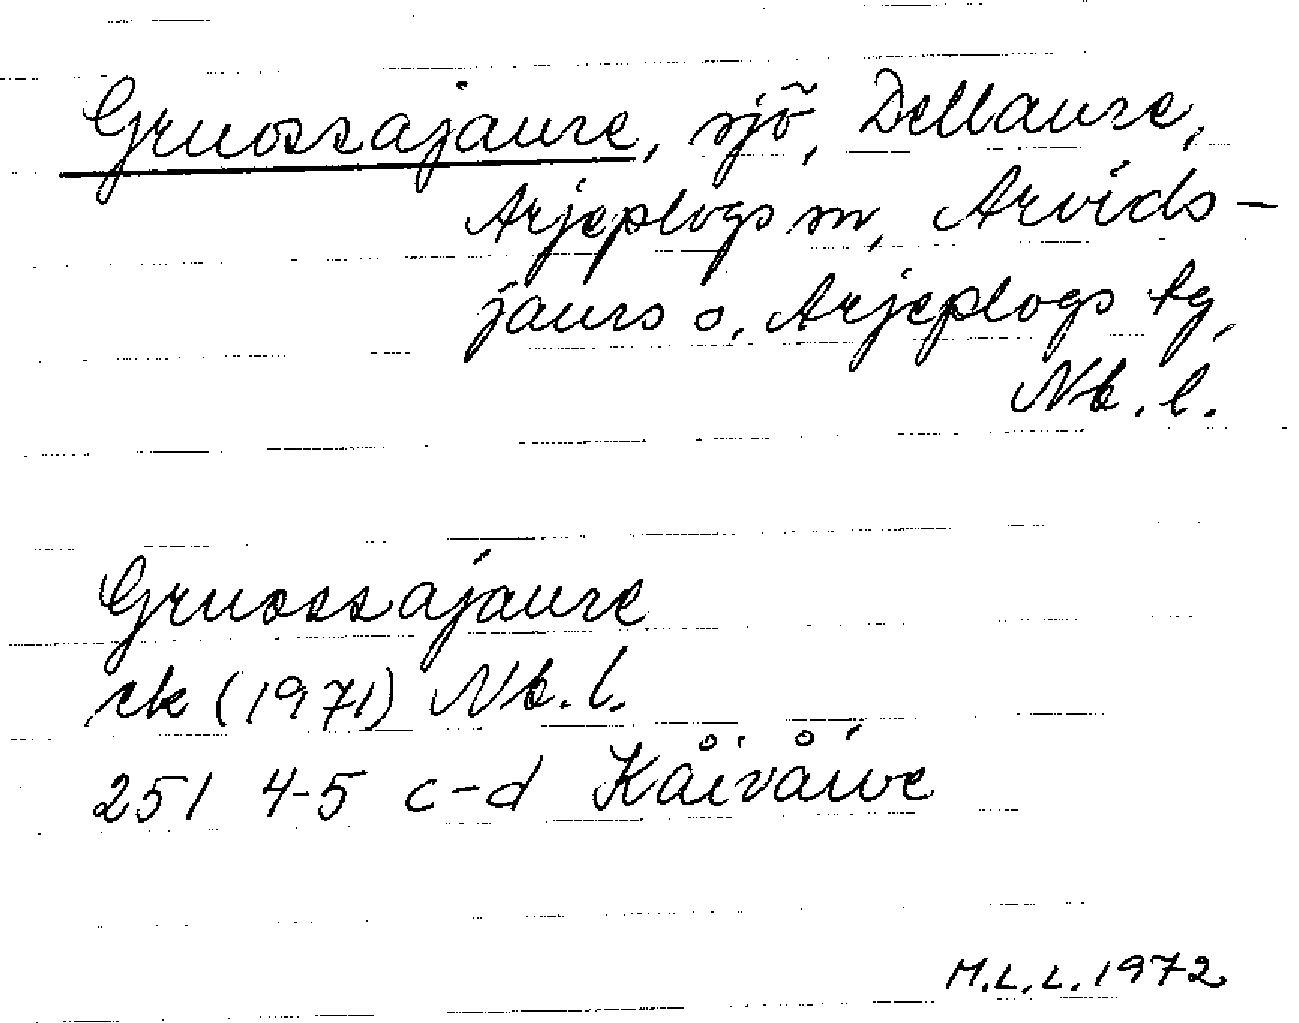 Gruossajaure, sjö, Dellaure,
Arjeplogs sn, Arvids-
jaurs o, Arjeplogs tg,
Nb. l.
Gruossajaure
rk (1971) Nb. l.
251 4-5 c-d Kåivåive
M.L.L. 1972